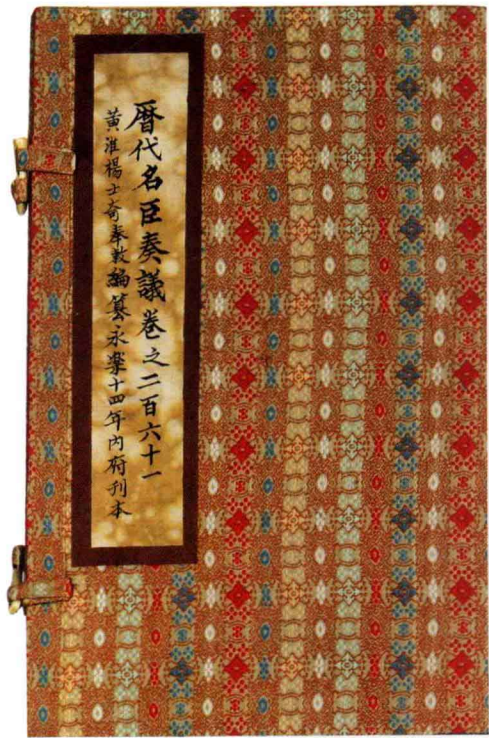 歷代名臣奏議卷之二百六十一
黃淮楊士奇奉敕編纂永樂十四年內府刊本